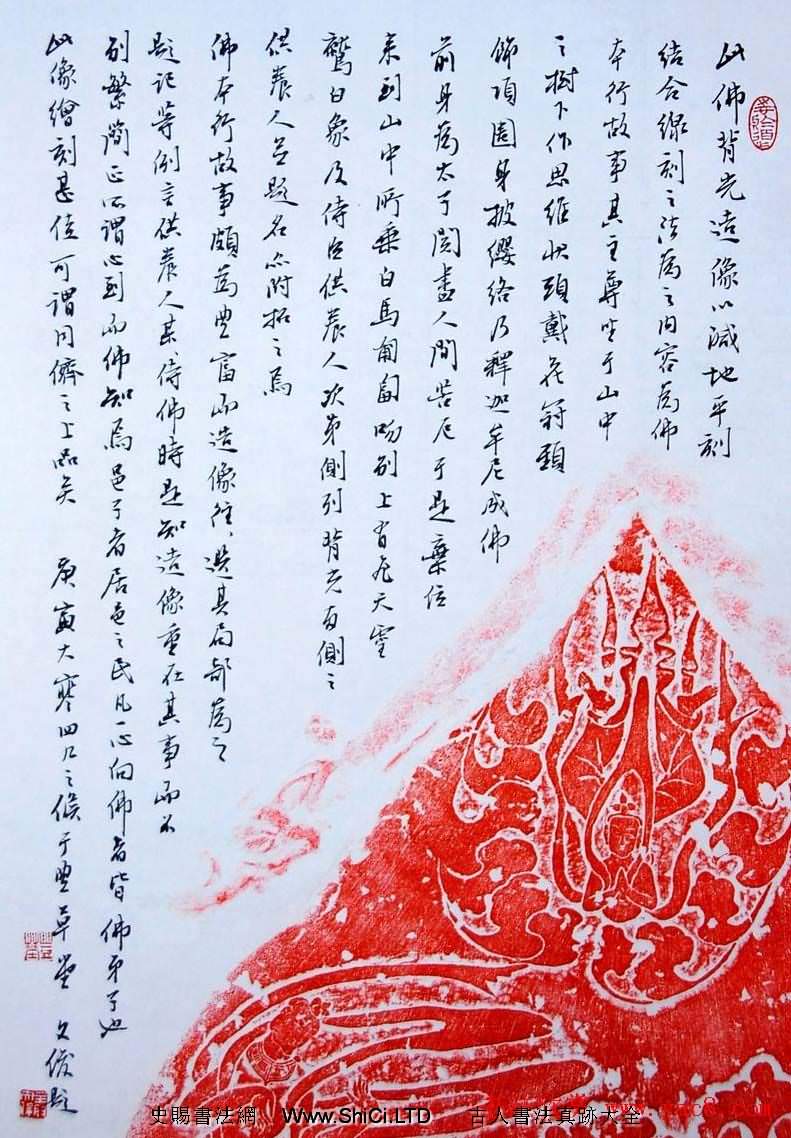 此佛背光造像以減地平刻
結合線刻之法為之內容為佛
本行故事其主尊坐于山中
之樹下作思維狀頭戴花冠頸
飾項圈身披纓絡乃釋迦牟尼成佛
前身為太子閱盡人間苦厄于是棄位
來到山中所乘白馬匍匐吻別上有飛天靈
鷲白象及侍臣供養人次第側列背光兩側之
供養人並題名亦附拓之焉
佛本行故事頗為豐富而造像往々選其局部為之
題記等例言供養人某々侍佛時是知造像重在其事而不
別繁簡正所謂心到而佛知焉邑子者居邑之民凡一心向佛者皆佛弟子也
此像繪刻甚佳可謂同儕之上品矣 庚寅大寒四九之候于豐草堂 文俊題
史賜書法網 www.ShiCi.LTD 古人書法真跡大全